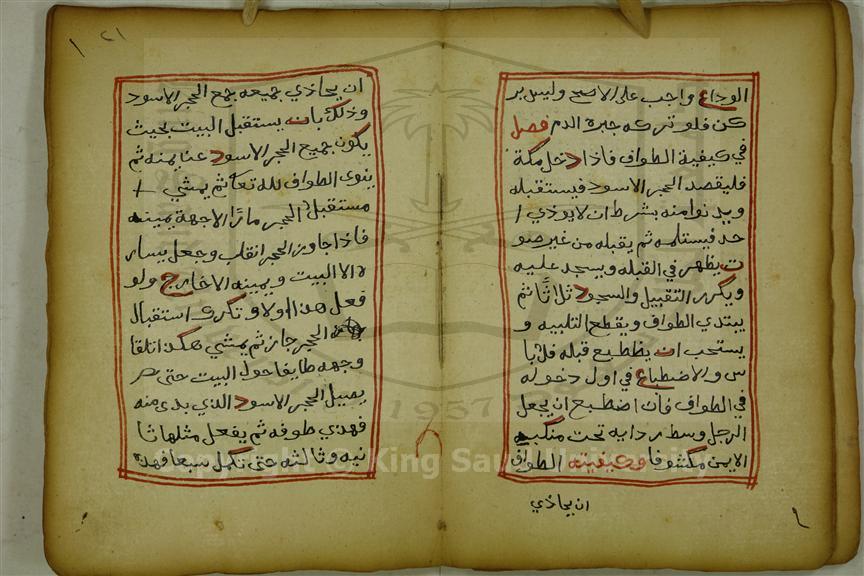 الوداع واجب على الاصح وليس بر
كن فلو تركه جبره الدم فصل
في كيفية الطواف فاذا دخل مكة
فليقصد الحجر الاسود فيستقبله
ويدنوا منه بشرط ان لا يوذي ا
حد فيستلمه ثم يقبله من غير صو
ت يظهر في القبله ويسجد عليه
ويكرر التقبيل والسجود ثلاثا ثم
يبتدي الطواف ويقطع التلبيه و
يستحب ان يظطبع قبله فلا با
س والاضطباع في اول دخوله
في الطواف فان اضطبع ان يجعل
الرجل وسط ردايه تحت منكبه
الايمن مكشوفا وكيفيته الطواف
ان يحاذي
٢١
ان يحاذي جميعه جمع الحجر الاسود
وذلك بان يستقبل البيت بحيث
يكون جميع الحجر الاسود عن يمنه ثم
ينوي الطواف لله تعا ثم يمشي
مستقبل الحجر مارا الا جهة يمينه
فاذا جاوز الحجر انقلب وجعل يسار
ه الا البيت ويمينه الا خارج ولو
فعل هذا اولا وترك استقبال
الحجر جاز ثم يمشي هكذا تلقا
وجهه طايفا حول البيت حتى
يصيل الحجر الاسود الذي بدى منه
فهذي طوفه ثم يفعل مثلها ثا
نيه وثالثه حتى تكمل سبعا فهذه
Copyright © King Saud University
1957